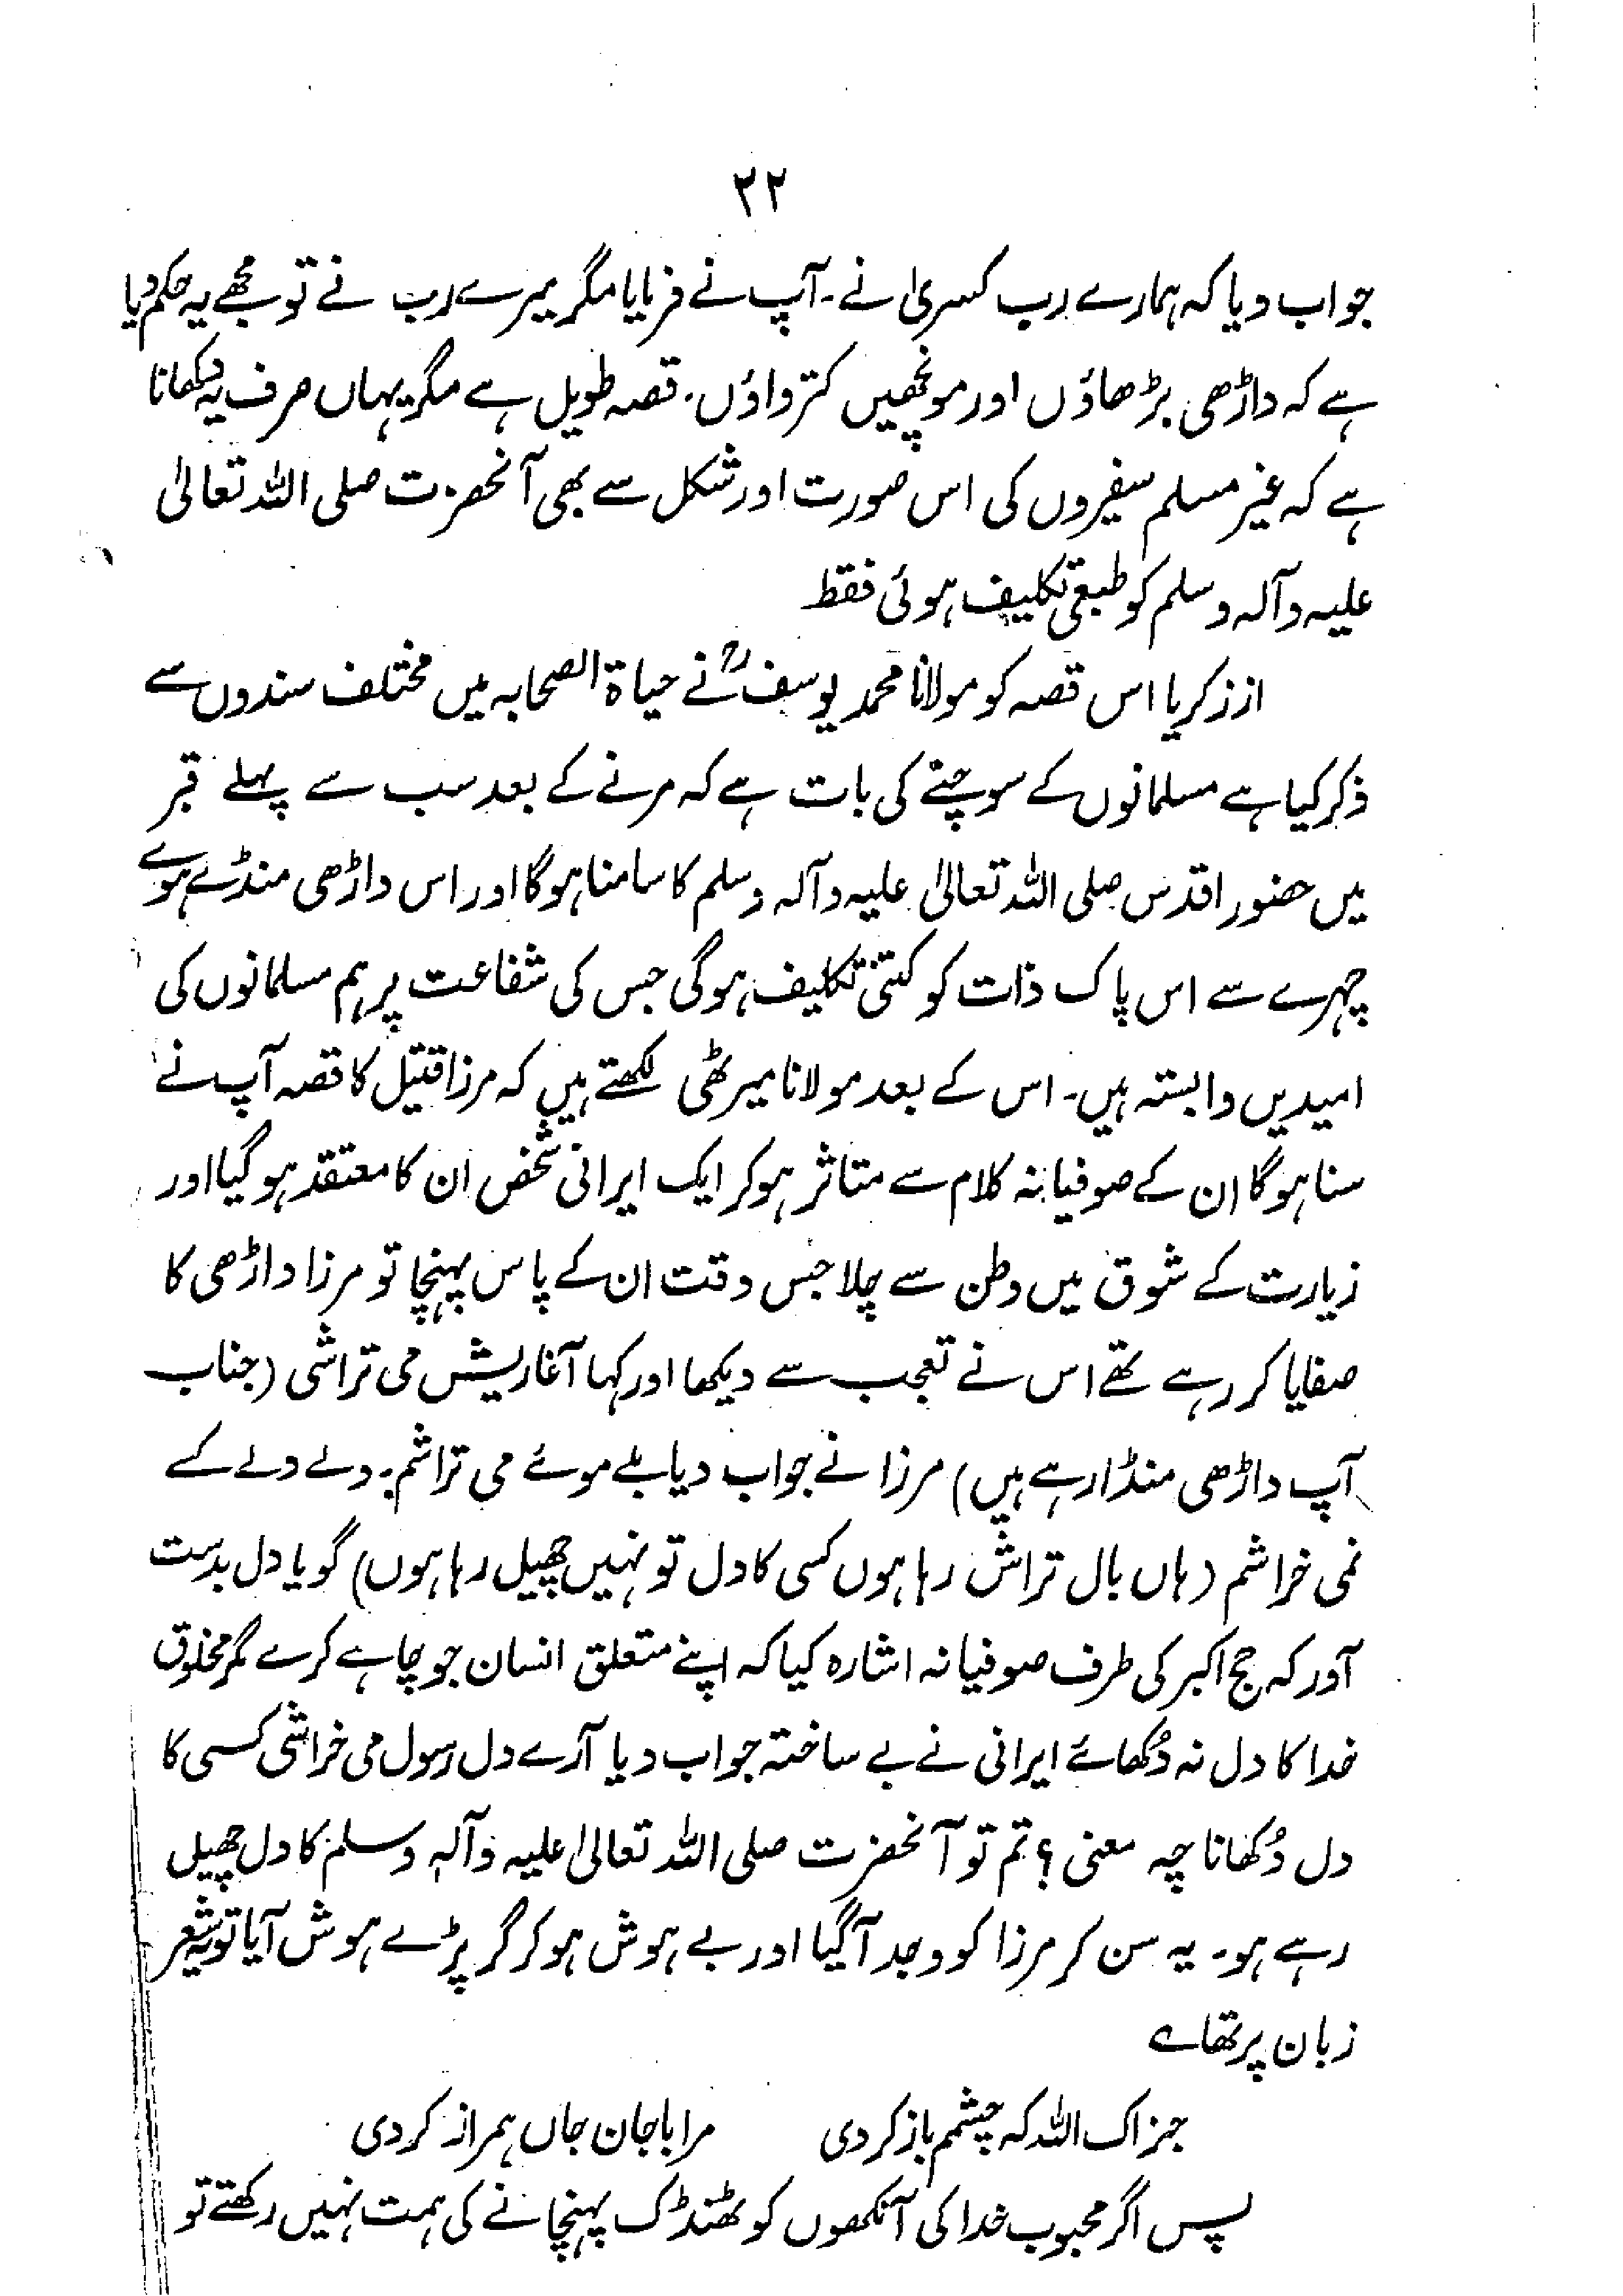 ۲۲
جواب دیا کہ ہمارے رب کسریٰ نے۔ آپ نے فرمایا مگر میرے رب نے تو مجھے یہ حکم دیا
ہے کہ داڑھی بڑھاؤں اور مونچھیں کترواؤں۔ قصہ طویل ہے مگر یہاں صرف یہ دکھانا
ہے کہ غیر مسلم سفیروں کی اس صورت اور شکل سے بھی آنحضرت صلی اللہ تعالیٰ
علیہ وآلہ وسلم کو طبعی تکلیف ہوئی فقط
از زکریا اس قصہ کو مولانا محمد یوسفؒ نے حیاۃ الصحابہ میں مختلف سندوں سے
ذکر کیا ہے مسلمانوں کے سوچنے کی بات ہے کہ مرنے کے بعد سب سے پہلے قبر
میں حضور اقدس صلی اللہ تعالیٰ علیہ وآلہ وسلم کا سامنا ہوگا اور اس داڑھی منڈے ہوے
چہرے سے اس پاک ذات کو کتنی تکلیف ہوگی جس کی شفاعت پر ہم مسلمانوں کی
امیدیں وابستہ ہیں۔ اس کے بعد مولانا میرٹھی لکھتے ہیں کہ مرزا قتیل کا قصہ آپ نے
سنا ہوگا ان کے صوفیانہ کلام سے متاثر ہوکر ایک ایرانی شخص ان کا معتقد ہوگیا اور
زیارت کے شوق میں وطن سے چلا جس وقت ان کے پاس پہنچا تو مرزا داڑھی کا
صفایا کر رہے تھے اس نے تعجب سے دیکھا اور کہا آغا ریش می تراشی (جناب
آپ داڑھی منڈا رہے ہیں) مرزا نے جواب دیا بلے موئے می تراشم۔ ولے دلے کے
نمی خراشم (ہاں بال تراش رہا ہوں کسی کا دل تو نہیں چھیل رہا ہوں) گویا دل بدست
آور کہ حج اکبر کی طرف صوفیانہ اشارہ کیا کہ اپنے متعلق انسان جو چاہے کرے مگر مخلوق
خدا کا دل نہ دُکھائے ایرانی نے بے ساختہ جواب دیا آرے دل رسول می خراشی کسی کا
دل دُکھانا چہ معنی؟ تم تو آنحضرت صلی اللہ تعالیٰ علیہ وآلہٖ وسلم کا دل چھیل
رہے ہو۔ یہ سن کر مرزا کو وجد آگیا اور بے ہوش ہوکر گر پڑے ہوش آیا تو یہ شعر
زبان پر تھا ؎
جزاک اللہ کہ چشمم باز کردی مرا با جان جاں ہمراز کردی
پس اگر محبوب خدا کی آنکھوں کو ٹھنڈک پہنچانے کی ہمت نہیں رکھتے تو